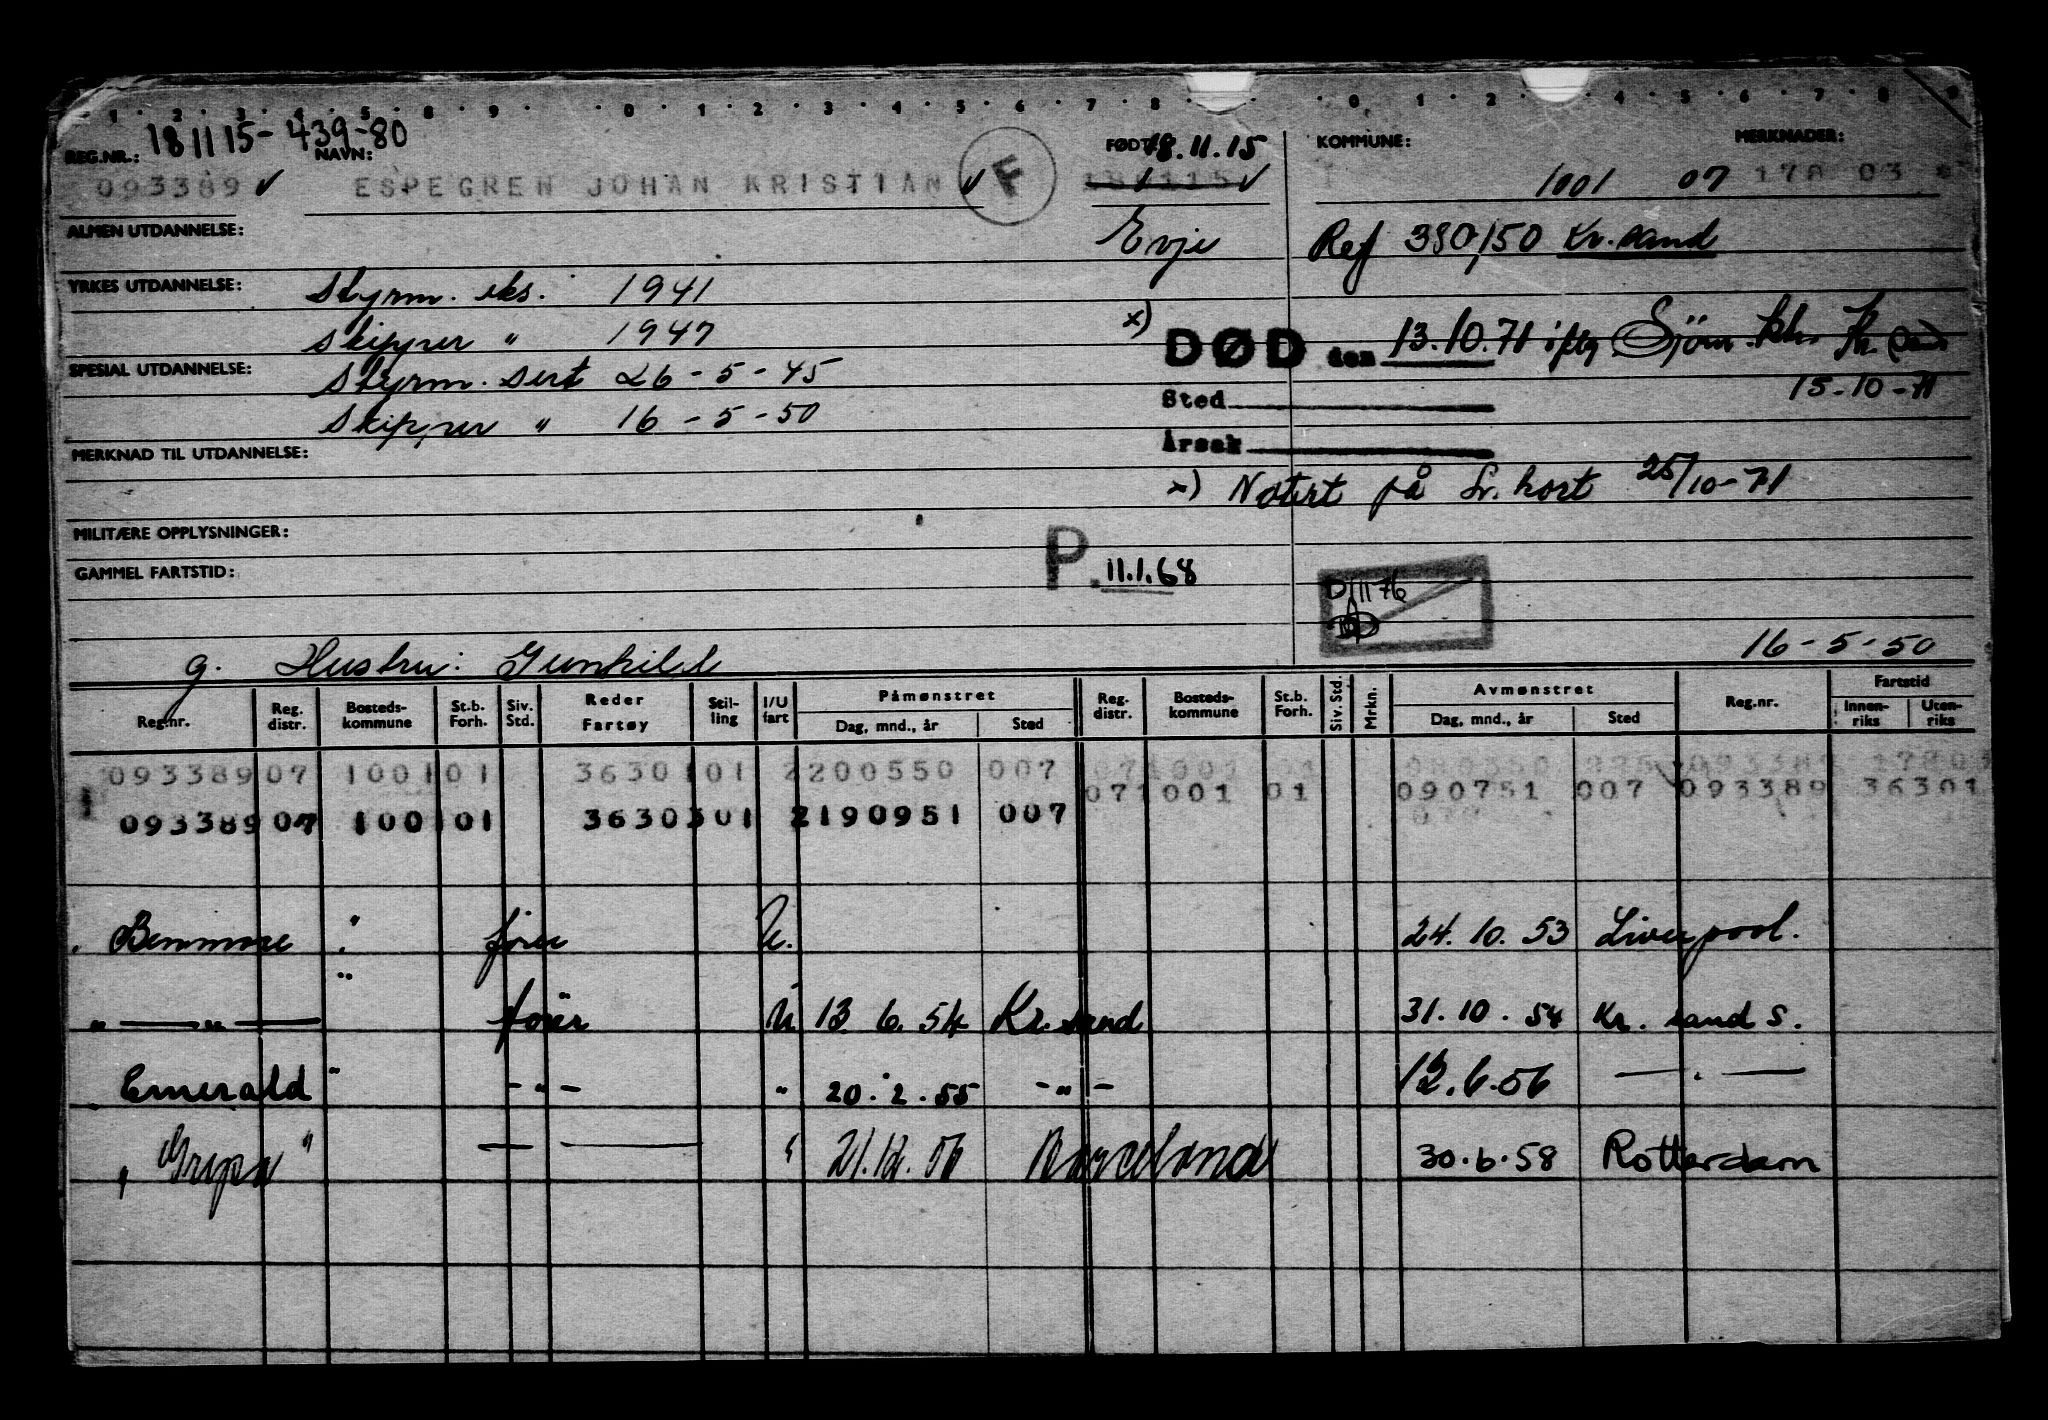 1 2 3 4 5 8 9 0 1 2 3 4 5 6 7 8 0 1 2 4 5 6 7 8 9
REG.NR.: 181115-439-80 NAVN: FØDT 18.11.15 KOMMUNE: MERKNADER:
093389 ✓ ESPEGREN JOHAN KRISTIAN ✓ F 181115 ✓ 1001 07 178 03
ALMEN UTDANNELSE: Evje Ref 380/50 Kr.sand
YRKES UTDANNELSE: Styrm. eks. 1941
skipper " 1947 x) DØD den 13.10.71 iflg. Sjøm.
SPESIAL UTDANNELSE: Styrm. sert 26-5-45 Sted 15-10-71
Skipper " 16-5-50 Årsak
MERKNAD TIL UTDANNELSE:
x) Notert på kort 25/10-71
MILITÆRE OPPLYSNINGER:
GAMMEL FARTSTID: P. 11.1.68
16-5-50
g. Hustru: Gunhild
Reg.nr. Reg. distr. Bosteds- kommune St.b. Forh. Siv. Std. Reder Fartøy Stil- ling I/U fart Påmønstret Dag, mnd., år Sted Reg. distr. Bosteds- kommune St.b. Forh. Siv. Std. Mrkn. Avmønstret Dag, mnd., år Sted Reg.nr. Fartstid Innen- riks Uten- riks
093389 07 1001 01 3630 101 2 200550 007
071001 01 090751 007 093389 36301
093389 07 100101 3630301 2190951 007
fører U. 24.10.53 Liverpool.
" — " — fører U 13 6. 54 Kr.sand 31.10.54 Kr.sand S.
"Emerald" - " - " 20.2.55 - " - 12.6.56 — " —
"Gripa" — — " 21.12.56 Barcelona 30.6.58 Rotterdam